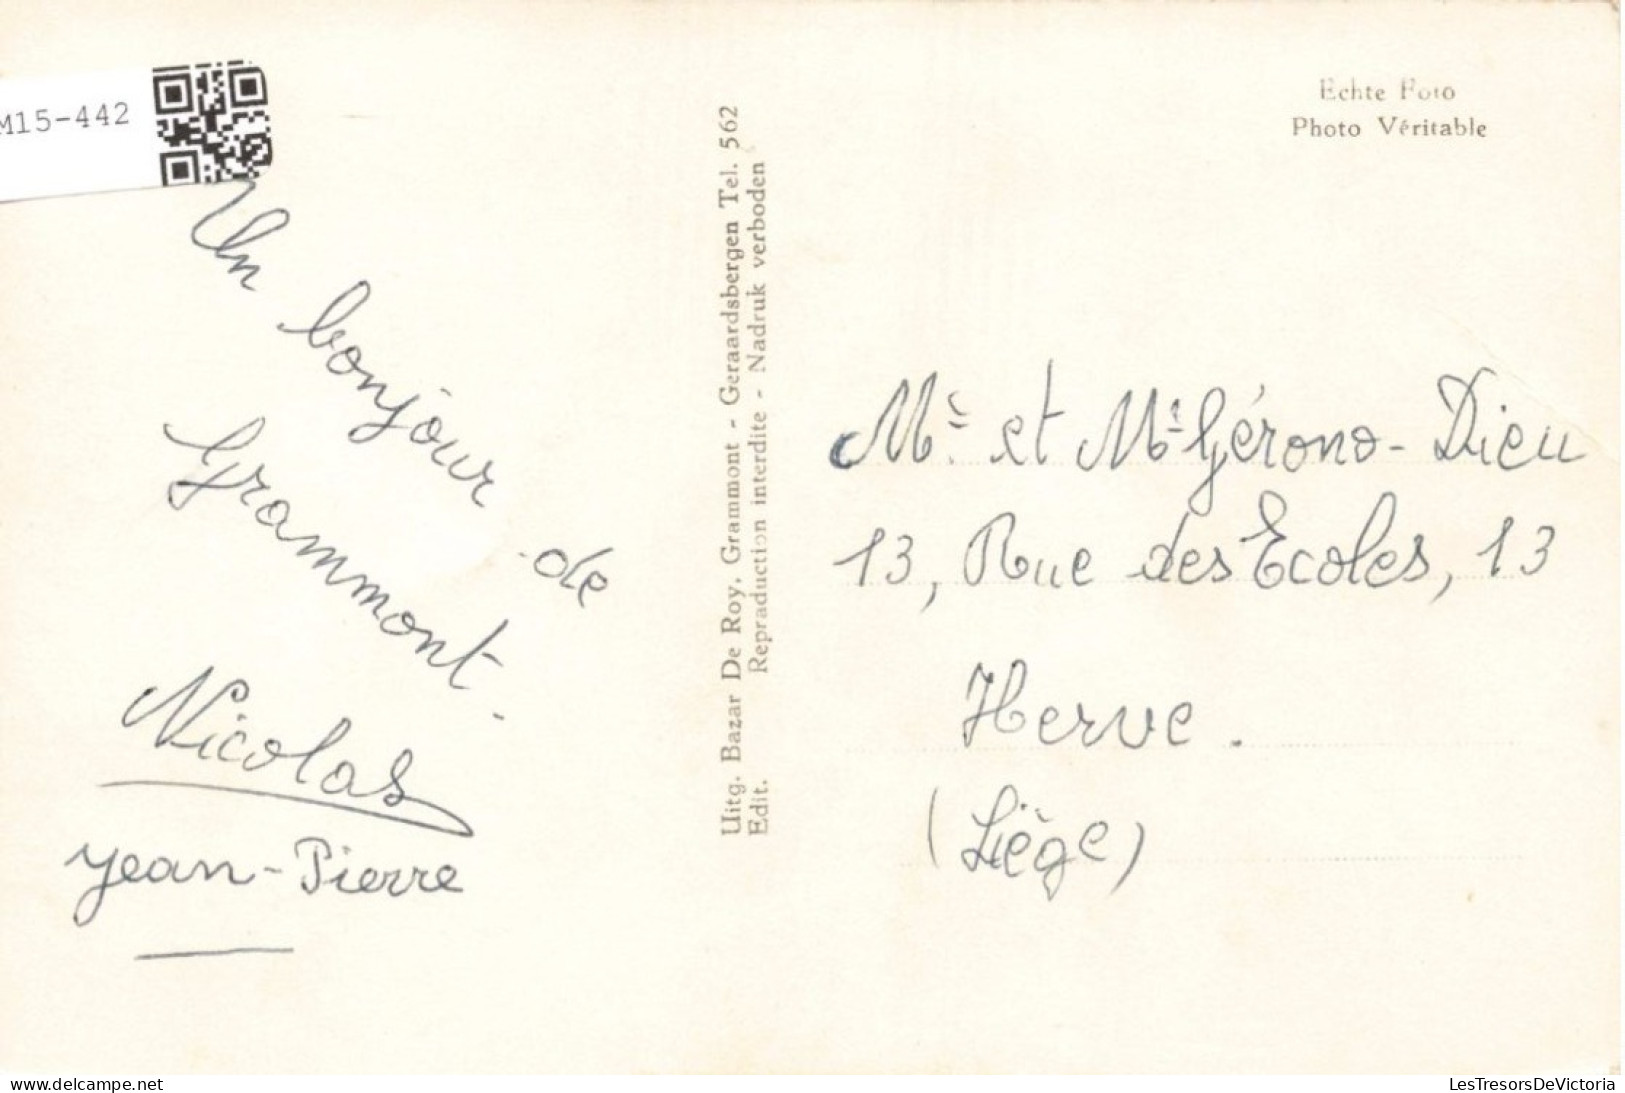 M15-442
Un bonjour de
Grammont.
Nicolas
Jean-Pierre
Uitg. Bazar De Roy, Grammont - Geraardsbergen Tel. 562
Edit. Repraduction interdite - Nadruk verboden
Echte Foto
Photo Véritable
Mr. et Me Gérono-Dieu
13, Rue des Ecoles, 13
Herve.
(Liège)
www.delcampe.net
LesTresorsDeVictoria